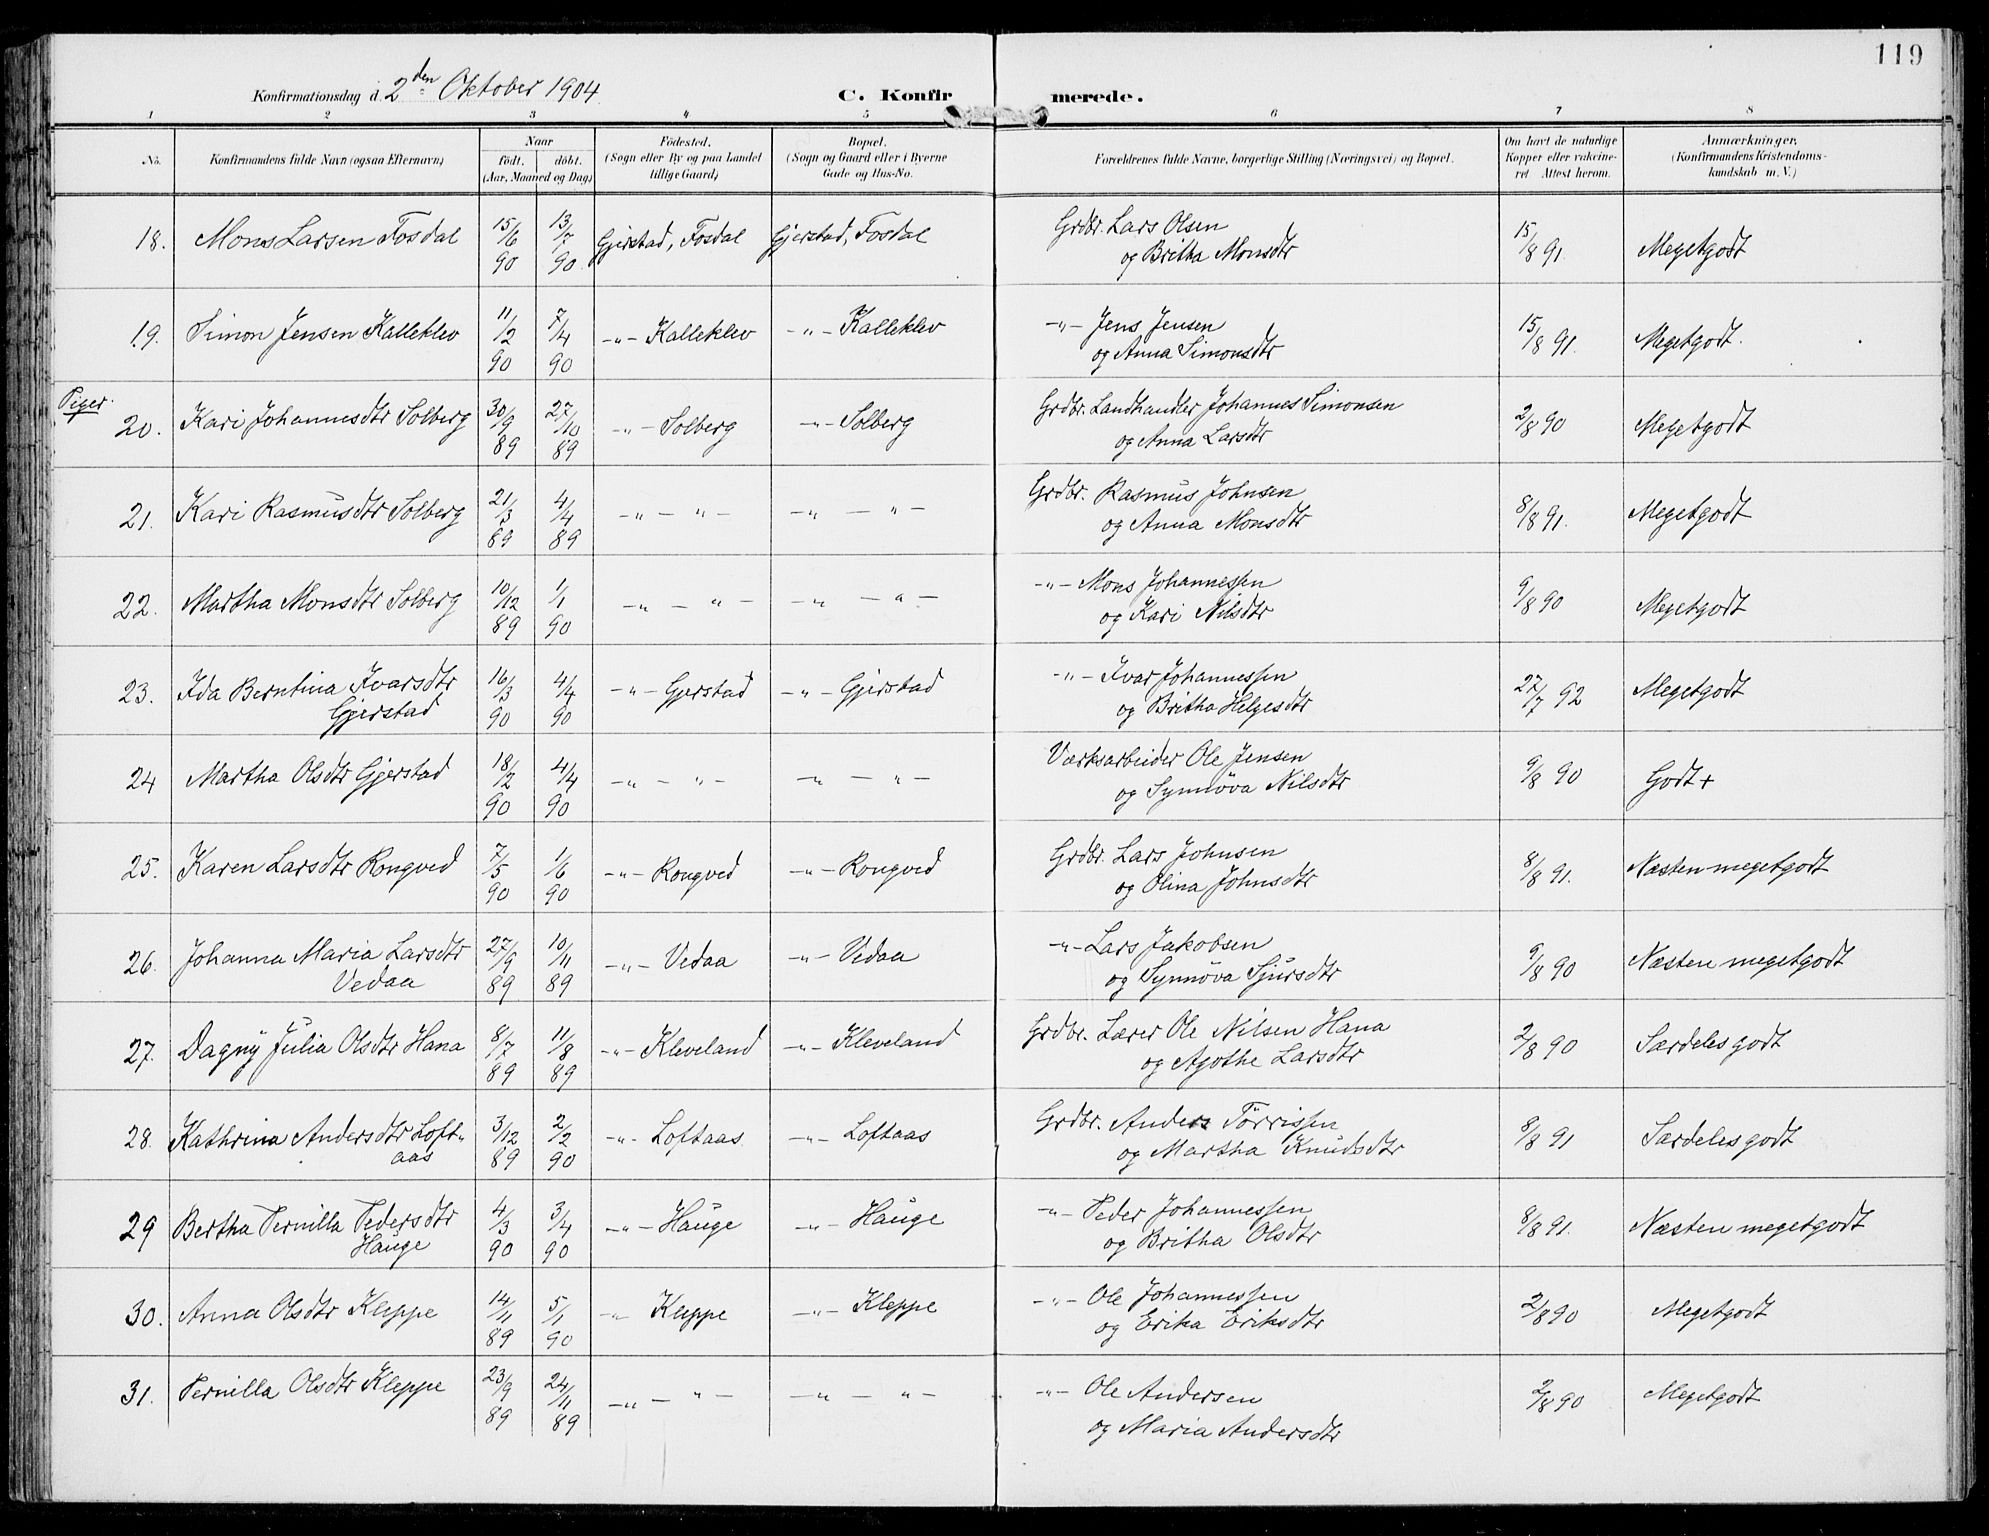 119
Konfirmationsdag d. 2den Oktober 1904.
C. Konfirmerede.
1 2 3 4 5 6 7 8
No. Konfirmandens fulde Navn (ogsaa Efternavn) Naar födt. döbt. (Aar, Maaned og Dag) Födested. (Sogn eller By og paa Landet tillige Gaard) Bopæl. (Sogn og Gaard eller i Byerne Gade og Hus-No. Forældrenes fulde Navne, borgerlige Stilling (Næringsvei) og Bopæl. Om havt de naturlige Kopper eller vakcineret Attest herom. Anmærkninger, (Konfirmandens Kristendomskundskab m. V.)
18. Mons Larsen Fosdal 15/6 90 13/7 90. Gjerstad, Fosdal Gjerstad, Fosdal Grdbr. Lars Olsen 15/8 91. Megetgodt
og Britha Monsdtr
19. Simon Jensen Kalleklev 11/2 90 7/4 90 -"- Kalleklev -"- Kalleklev -"- Jens Jensen 15/8 91. Megetgodt.
og Anna Simonsdtr
Piger.
20. Kari Johannesdtr Solberg 30/9 89 27/10 89 -"- Solberg -"- Solberg Grdbr. Landhandler Johannes Simonsen 2/8 90 Megetgodt
og Anna Larsdtr
21. Kari Rasmusdtr Solberg 21/3 89 4/4 89 -"- "- -"- "- Grdbr. Rasmus Johnsen 8/8 91. Megetgodt
og Anna Monsdtr
22. Martha Monsdtr Solberg 10/12 89 1/1 90 -"- "- -"- "- -"- Mons Johannessen 9/8 90 Megetgodt
og Kari Nilsdtr
23. Ida Berntina Ivarsdtr 16/3 90 4/4 90 -"- Gjerstad -"- Gjerstad -"- Ivar Johannessen 27/7 92 Megetgodt
Gjerstad og Britha Helgesdtr
24 Martha Olsdtr Gjerstad 18/2 90 4/4 90 -"- "- -"- "- Værksarbeider Ole Jensen 9/8 90 Godt +
og Synnöva Nilsdtr
25. Karen Larsdtr Rongved 7/5 90 1/6 90 -"- Rongved -"- Rongved Grdbr. Lars Johnsen 8/8 91. Næsten megetgodt
og Olina Johnsdtr
26. Johanna Maria Larsdtr 27/9 89 10/11 89 -"- Vedaa -"- Vedaa -"- Lars Jakobsen 9/8 90 Næsten megetgodt
Vedaa og Synnöva Sjursdtr
27. Dagny Julia Olsdtr Hana 8/7 89 11/8 89 -"- Kleveland -"- Kleveland Grdbr. Lærer Ole Nilsen Hana 2/8 90 Særdeles godt
og Agothe Larsdtr
28. Kathrina Andersdtr Loft" 3/12 89 2/2 90 -"- Loftaas -"- Loftaas Grdbr. Anders Törrissen 8/8 91 Særdeles godt
aas og Martha Knudsdtr
29 Bertha Pernilla Pedersdtr 4/3 90 3/4 90 -"- Hauge -"- Hauge -"- Peder Johannessen 8/8 91. Næsten megetgodt
Hauge og Britha Olsdtr
30. Anna Olsdtr Kleppe 14/11 89 5/1 90 -"- Kleppe -"- Kleppe -"- Ole Johannessen 2/8 90 Megetgodt
og Erika Eriksdtr
31. Pernilla Olsdtr Kleppe 23/9 89 24/11 89 -"- "- -"- "- -"- Ole Andersen 2/8 90 Megetgodt
og Maria Andersdtr